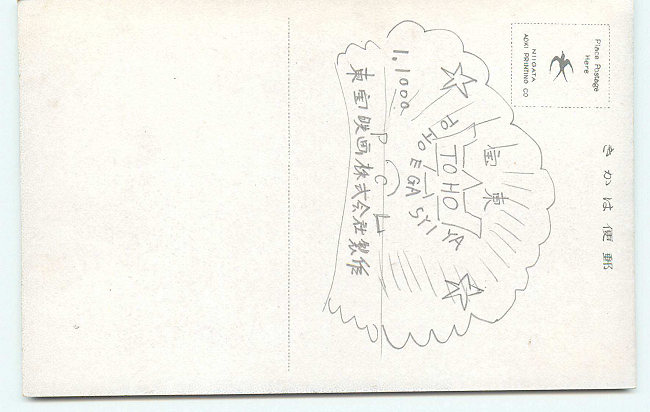 Place Postage
Here
NIIGATA
AOKI PRINTING CO
きかは便郵
宝東
TOHO
TOHO EGA SYIYA
1,1000
P C L
東宝映画株式会社製作